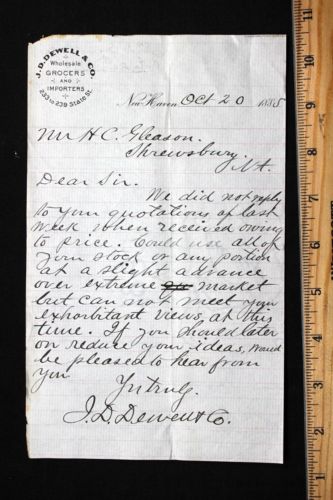 J.D. DEWELL & CO.
Wholesale
GROCERS
AND
IMPORTERS
233 to 239 State St.
New Haven Oct 20 1885
Mr H C. Gleason.
Shrewsbury
Vt.
Dear Sir.
We did not reply
to your quotations of last
week when received owing
to price. Could use all of
your stock or any portion
at a slight advance
over extreme market
but can not meet your
exhorbitant views, at this
time. If you should later
on reduce your ideas, would
be pleased to hear from
you
Yr truly.
J. D. Dewell & Co.
1
2
3
4
5
6
7
8
9
10
11